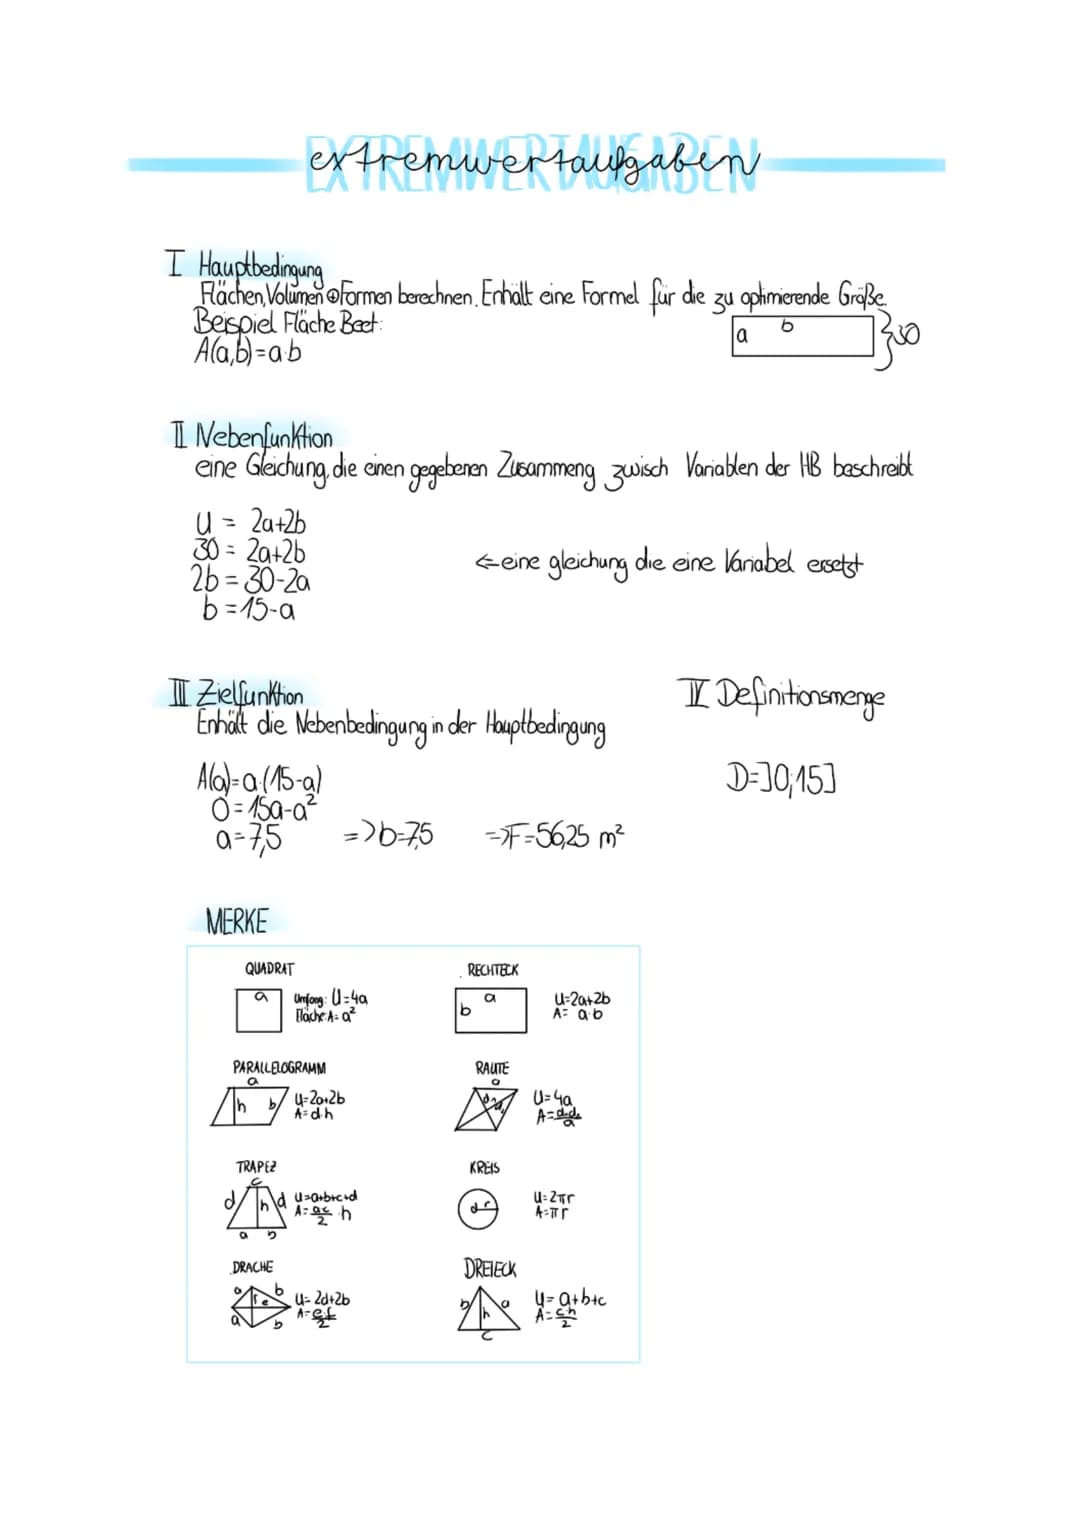 extremwertaufgaben
I Hauptbedingung
Flächen, Volumen Formen berechnen. Enhält eine Formel für die zu optimierende Größe.
Beispiel Fläche Beet:
A(a,b)=a·b
a b 30
II Nebenfunktion
eine Gleichung, die einen gegebenen Zusammeng zwisch Variablen der HB beschreibt
U = 2a+2b
30 = 2a+2b
2b = 30-2a
b = 15-a
<= eine gleichung die eine Variabel ersetzt
III Zielfunktion
Enhält die Nebenbedingung in der Hauptbedingung
A(a)=a·(15-a)
0=15a-a²
a=7,5 => b=7,5 => F=56,25 m²
IV Definitionsmenge
D=]0;15]
MERKE
QUADRAT
a
Umfang: U=4a
Fläche: A=a²
RECHTECK
a
b
U=2a+2b
A= a·b
PARALLELOGRAMM
a
h b
U=2a+2b
A= d·h
RAUTE
a
U=4a
TRAPEZ
c
d h d
a b
U=a+b+c+d
A= ac/2 · h
KREIS
d r
U=2πr
A=πr
DRACHE
a b
f e
a b
U= 2d+2b
A= e·f/2
DREIECK
b h a
c
U= a+b+c
A= c·h/2